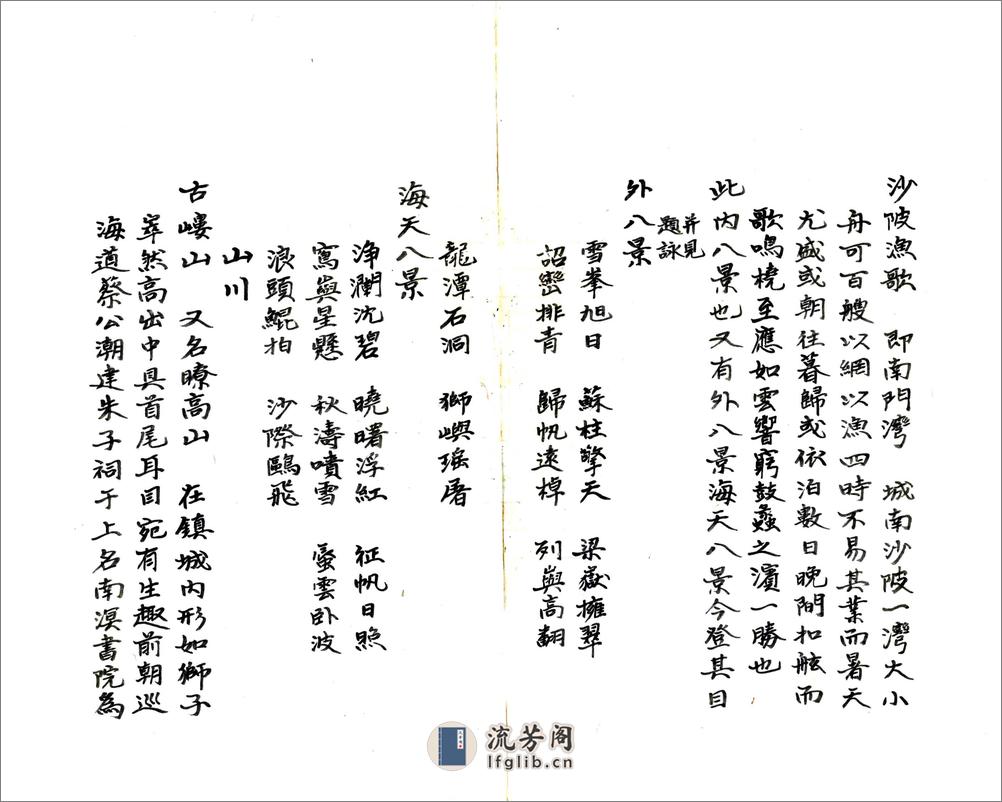 沙陂漁歌 即南門灣 城南沙陂一灣大小
舟可百艘以網以漁四時不易其業而暑天
尤盛或朝往暮歸或依泊數日晚間扣舷而
歌鳴橈至應如雲響窮鼓蠡之濱一勝也
此内八景也又有外八景海天八景今登其目
并見
題詠
外八景
雪峯旭日 蘇柱擎天 梁嶽擁翠
詔巒排青 歸帆遠棹 列嶼高翻
龍潭石洞 獅嶼瑤屠
海天八景
浄瀾沈碧 曉曙浮紅 征帆日照
寫嶼星懸 秋濤噴雪 蜃雲卧波
浪頭鯤拍 沙際鷗飛
山川
古嶁山 又名瞭高山 在鎮城内形如獅子
崒然高出中具首尾耳目宛有生趣前朝巡
海道蔡公潮建朱子祠于上名南溟書院為
流芳阁
lfglib.cn